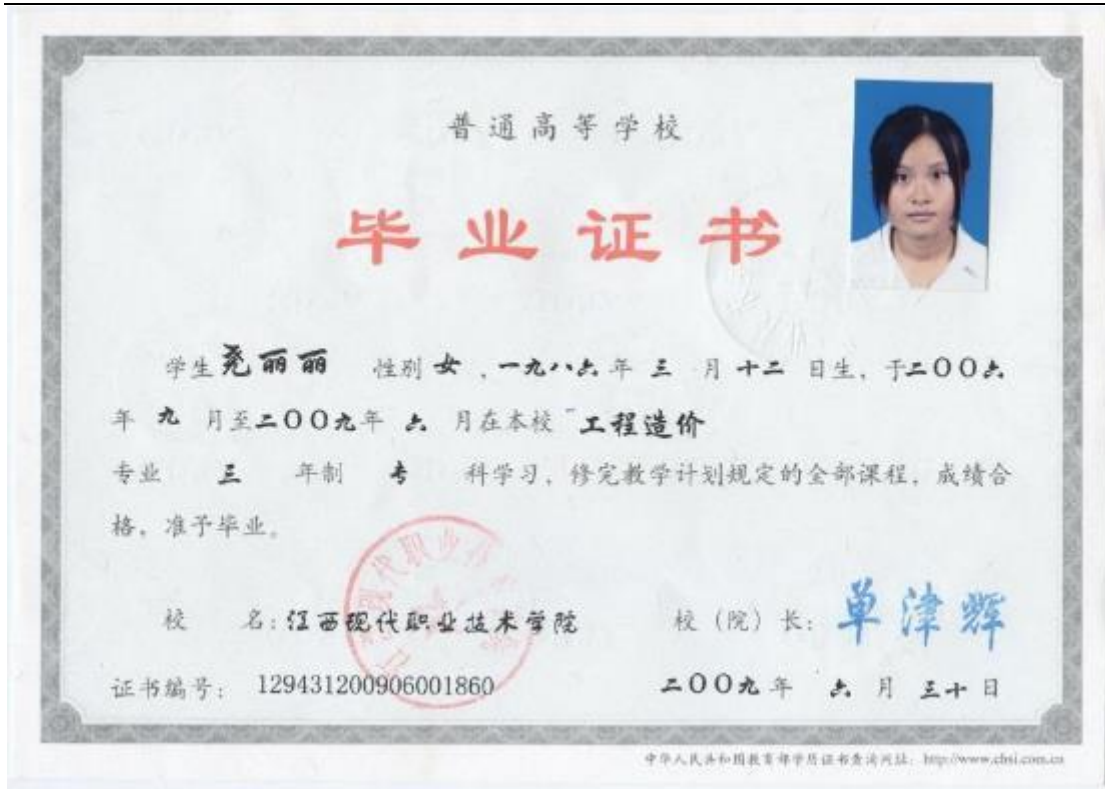 普通高等学校
毕业证书
学生尧丽丽 性别 女，一九八六年 三 月 十二 日生，于二〇〇六
年 九 月至二〇〇九年 六 月在本校 工程造价
专业 三 年制 专 科学习，修完教学计划规定的全部课程，成绩合
格，准予毕业。
校 名：江西现代职业技术学院 校（院）长：单津辉
证书编号： 129431200906001860 二〇〇九年 六 月 三十 日
中华人民共和国教育部学历证书查询网址：http://www.chsi.com.cn